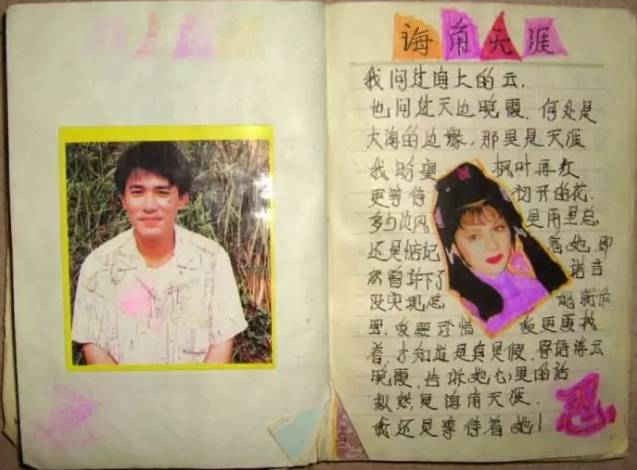 海角天涯
我问过海上的云.
也问过天边晚霞, 何处是
大海的边缘, 那里是天涯
我盼望 枫叶再红
更等待 初开的花.
多少次风 里雨里总
还是惦记 着她, 即
然曾许下了 诺言
没实现怎 能就作
罢, 我要 惜 我更要找
着, 才知道是真是假, 请浮云
晚霞, 告诉她心里的话
纵然是海角天涯.
我还是等待着她!
忍